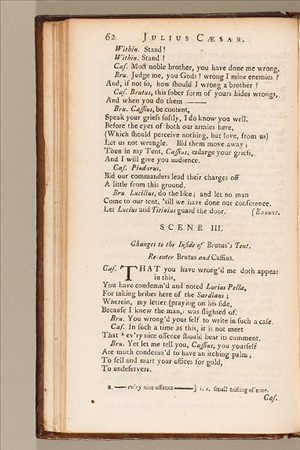 62 JULIUS CÆSAR.
Within. Stand!
Within. Stand!
Cas. Most noble brother, you have done me wrong.
Bru. Judge me, you Gods! wrong I mine enemies?
And, if not so, how should I wrong a brother?
Cas. Brutus, this sober form of yours hides wrongs,
And when you do them ———
Bru. Cassius, be content,
Speak your griefs softly, I do know you well.
Before the eyes of both our armies here,
(Which should perceive nothing, but love, from us)
Let us not wrangle. Bid them move away;
Then in my Tent, Cassius, enlarge your griefs,
And I will give you audience.
Cas. Pindarus,
Bid our commanders lead their charges off
A little from this ground.
Bru. Lucillius, do the like; and let no man
Come to our tent, 'till we have done our conference.
Let Lucius and Titinius guard the door. [Exeunt.
SCENE III.
Changes to the Inside of Brutus's Tent.
Re-enter Brutus and Cassius.
Cas. THAT you have wrong'd me doth appear
in this,
You have condemn'd and noted Lucius Pella,
For taking bribes here of the Sardians;
Wherein, my letter (praying on his side,
Because I knew the man,) was slighted of.
Bru. You wrong'd your self to write in such a case.
Cas. In such a time as this, it is not meet
That ev'ry nice offence should bear its comment.
Bru. Yet let me tell you, Cassius, you yourself
Are much condemn'd to have an itching palm;
To sell and mart your offices for gold,
To undeservers.
—— ev'ry nice offence ——] i. e. small trifling offence.
Cas.